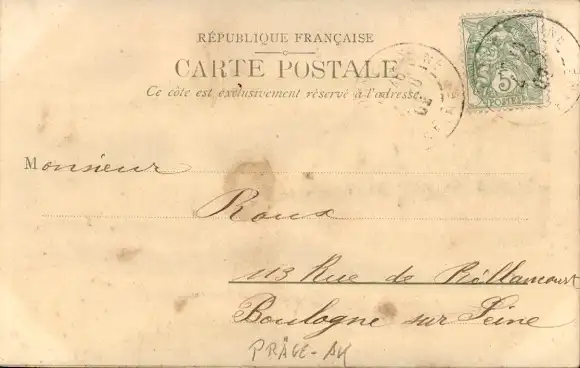 RÉPUBLIQUE FRANÇAISE
CARTE POSTALE
Ce côté est exclusivement réservé à l'adresse
5
POSTES
Monsieur
Roux
113 Rue de Billancourt
Boulogne sur Seine
PRÄGE-AK